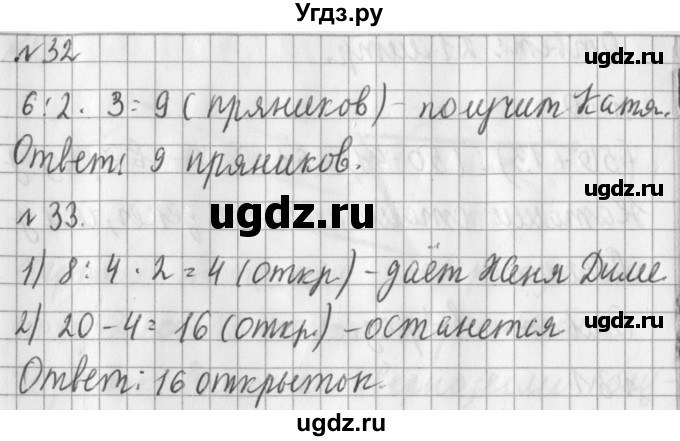 Угдз.ру
ugdz.ru
№32
ugdz.ru
6:2·3=9 (пряников) - получит Катя.
Ответ: 9 пряников.
ugdz.ru
№33.
ugdz.ru
ugdz.ru
1) 8:4·2=4 (откр.) - даёт Женя Диме
2) 20-4=16 (откр.) - останется
ugdz.ru
Ответ: 16 открыток.
ugdz.ru
ugdz.ru